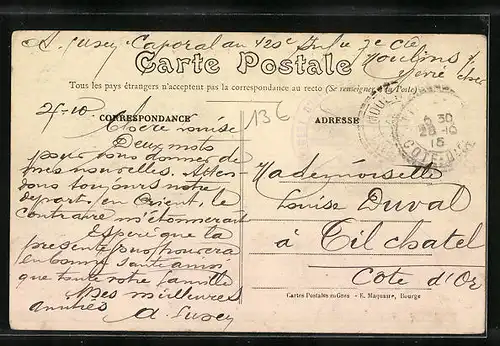 A. Susey Caporal au 42e 7e Cie
Moulins s/
Carte Postale
Tous les pays étrangers n'acceptent pas la correspondance au recto (Se renseigner à la Poste)
25-10
136
CORRESPONDANCE
ADRESSE
Chère Louise
Deux mots
pour vous donner de
mes nouvelles. Atten-
dons toujours notre
départ en Orient, le
contraire m'étonnerait
Espère que ta
présente vous trouvera
en bonne santé ainsi
que toute votre famille
Mes meilleures
amitiés
A Susey
30
28-10
15
COTE-D'OR
Mademoiselle
Louise Duval
à Til chatel
Côte d'Or
Cartes Postales en Gros - E. Maquaire, Bourge